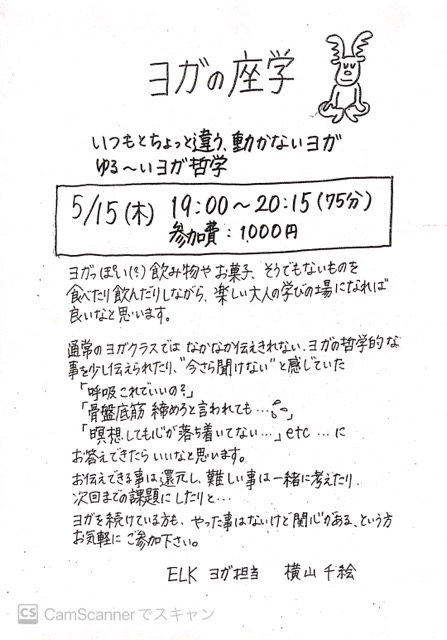 ヨガの座学
いつもとちょっと違う、動かないヨガ
ゆる〜いヨガ哲学
5/15(木) 19:00〜20:15(75分)
参加費:1,000円
ヨガっぽい(?)飲み物やお菓子、そうでもないものを
食べたり飲んだりしながら、楽しい大人の学びの場になれば
良いなと思います。
通常のヨガクラスでは なかなか伝えきれない、ヨガの哲学的な
事を少し伝えられたり、"今さら聞けない"と感じていた
「呼吸これでいいの?」
「骨盤底筋 締めろと言われても…」
「瞑想しても心が落ち着いてない…」etc…に
お答えできたらいいなと思います。
お伝えできる事は還元し、難しい事は一緒に考えたり、
次回までの課題にしたりと…
ヨガを続けている方も、やった事はないけど関心がある、という方
お気軽にご参加下さい。
ELK ヨガ担当 横山 千絵
CS CamScannerでスキャン